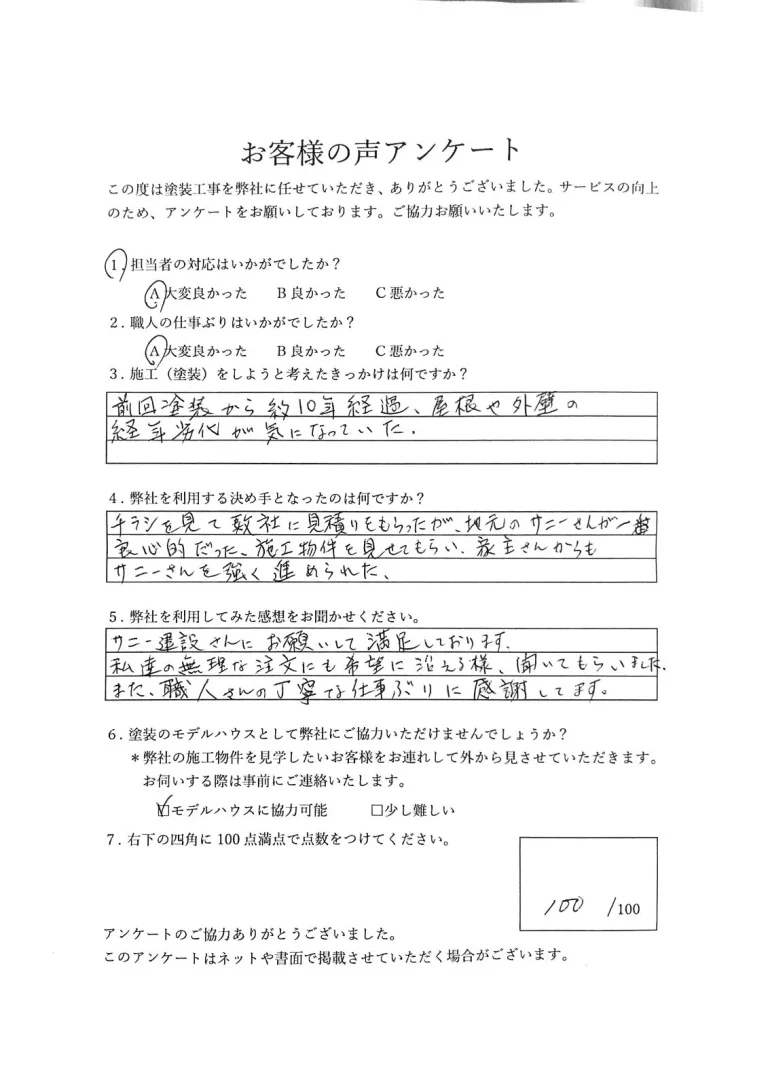 お客様の声アンケート
この度は塗装工事を弊社に任せていただき、ありがとうございました。サービスの向上
のため、アンケートをお願いしております。ご協力お願いいたします。
1. 担当者の対応はいかがでしたか？
A 大変良かった B 良かった C 悪かった
2. 職人の仕事ぶりはいかがでしたか？
A 大変良かった B 良かった C 悪かった
3. 施工（塗装）をしようと考えたきっかけは何ですか？
前回塗装から約10年経過、屋根や外壁の
経年劣化が気になっていた.
4. 弊社を利用する決め手となったのは何ですか？
チラシを見て数社に見積りをもらったが、地元のサニーさんが一番
良心的だった、施工物件を見せてもらい、家主さんからも
サニーさんを強く進められた、
5. 弊社を利用してみた感想をお聞かせください。
サニー建設さんにお願いして満足しております.
私達の無理な注文にも希望に沿える様、聞いてもらいました.
また、職人さんの丁寧な仕事ぶりに感謝してます。
6. 塗装のモデルハウスとして弊社にご協力いただけませんでしょうか？
＊弊社の施工物件を見学したいお客様をお連れして外から見させていただきます。
お伺いする際は事前にご連絡いたします。
☑モデルハウスに協力可能 □少し難しい
7. 右下の四角に 100 点満点で点数をつけてください。
100 /100
アンケートのご協力ありがとうございました。
このアンケートはネットや書面で掲載させていただく場合がございます。